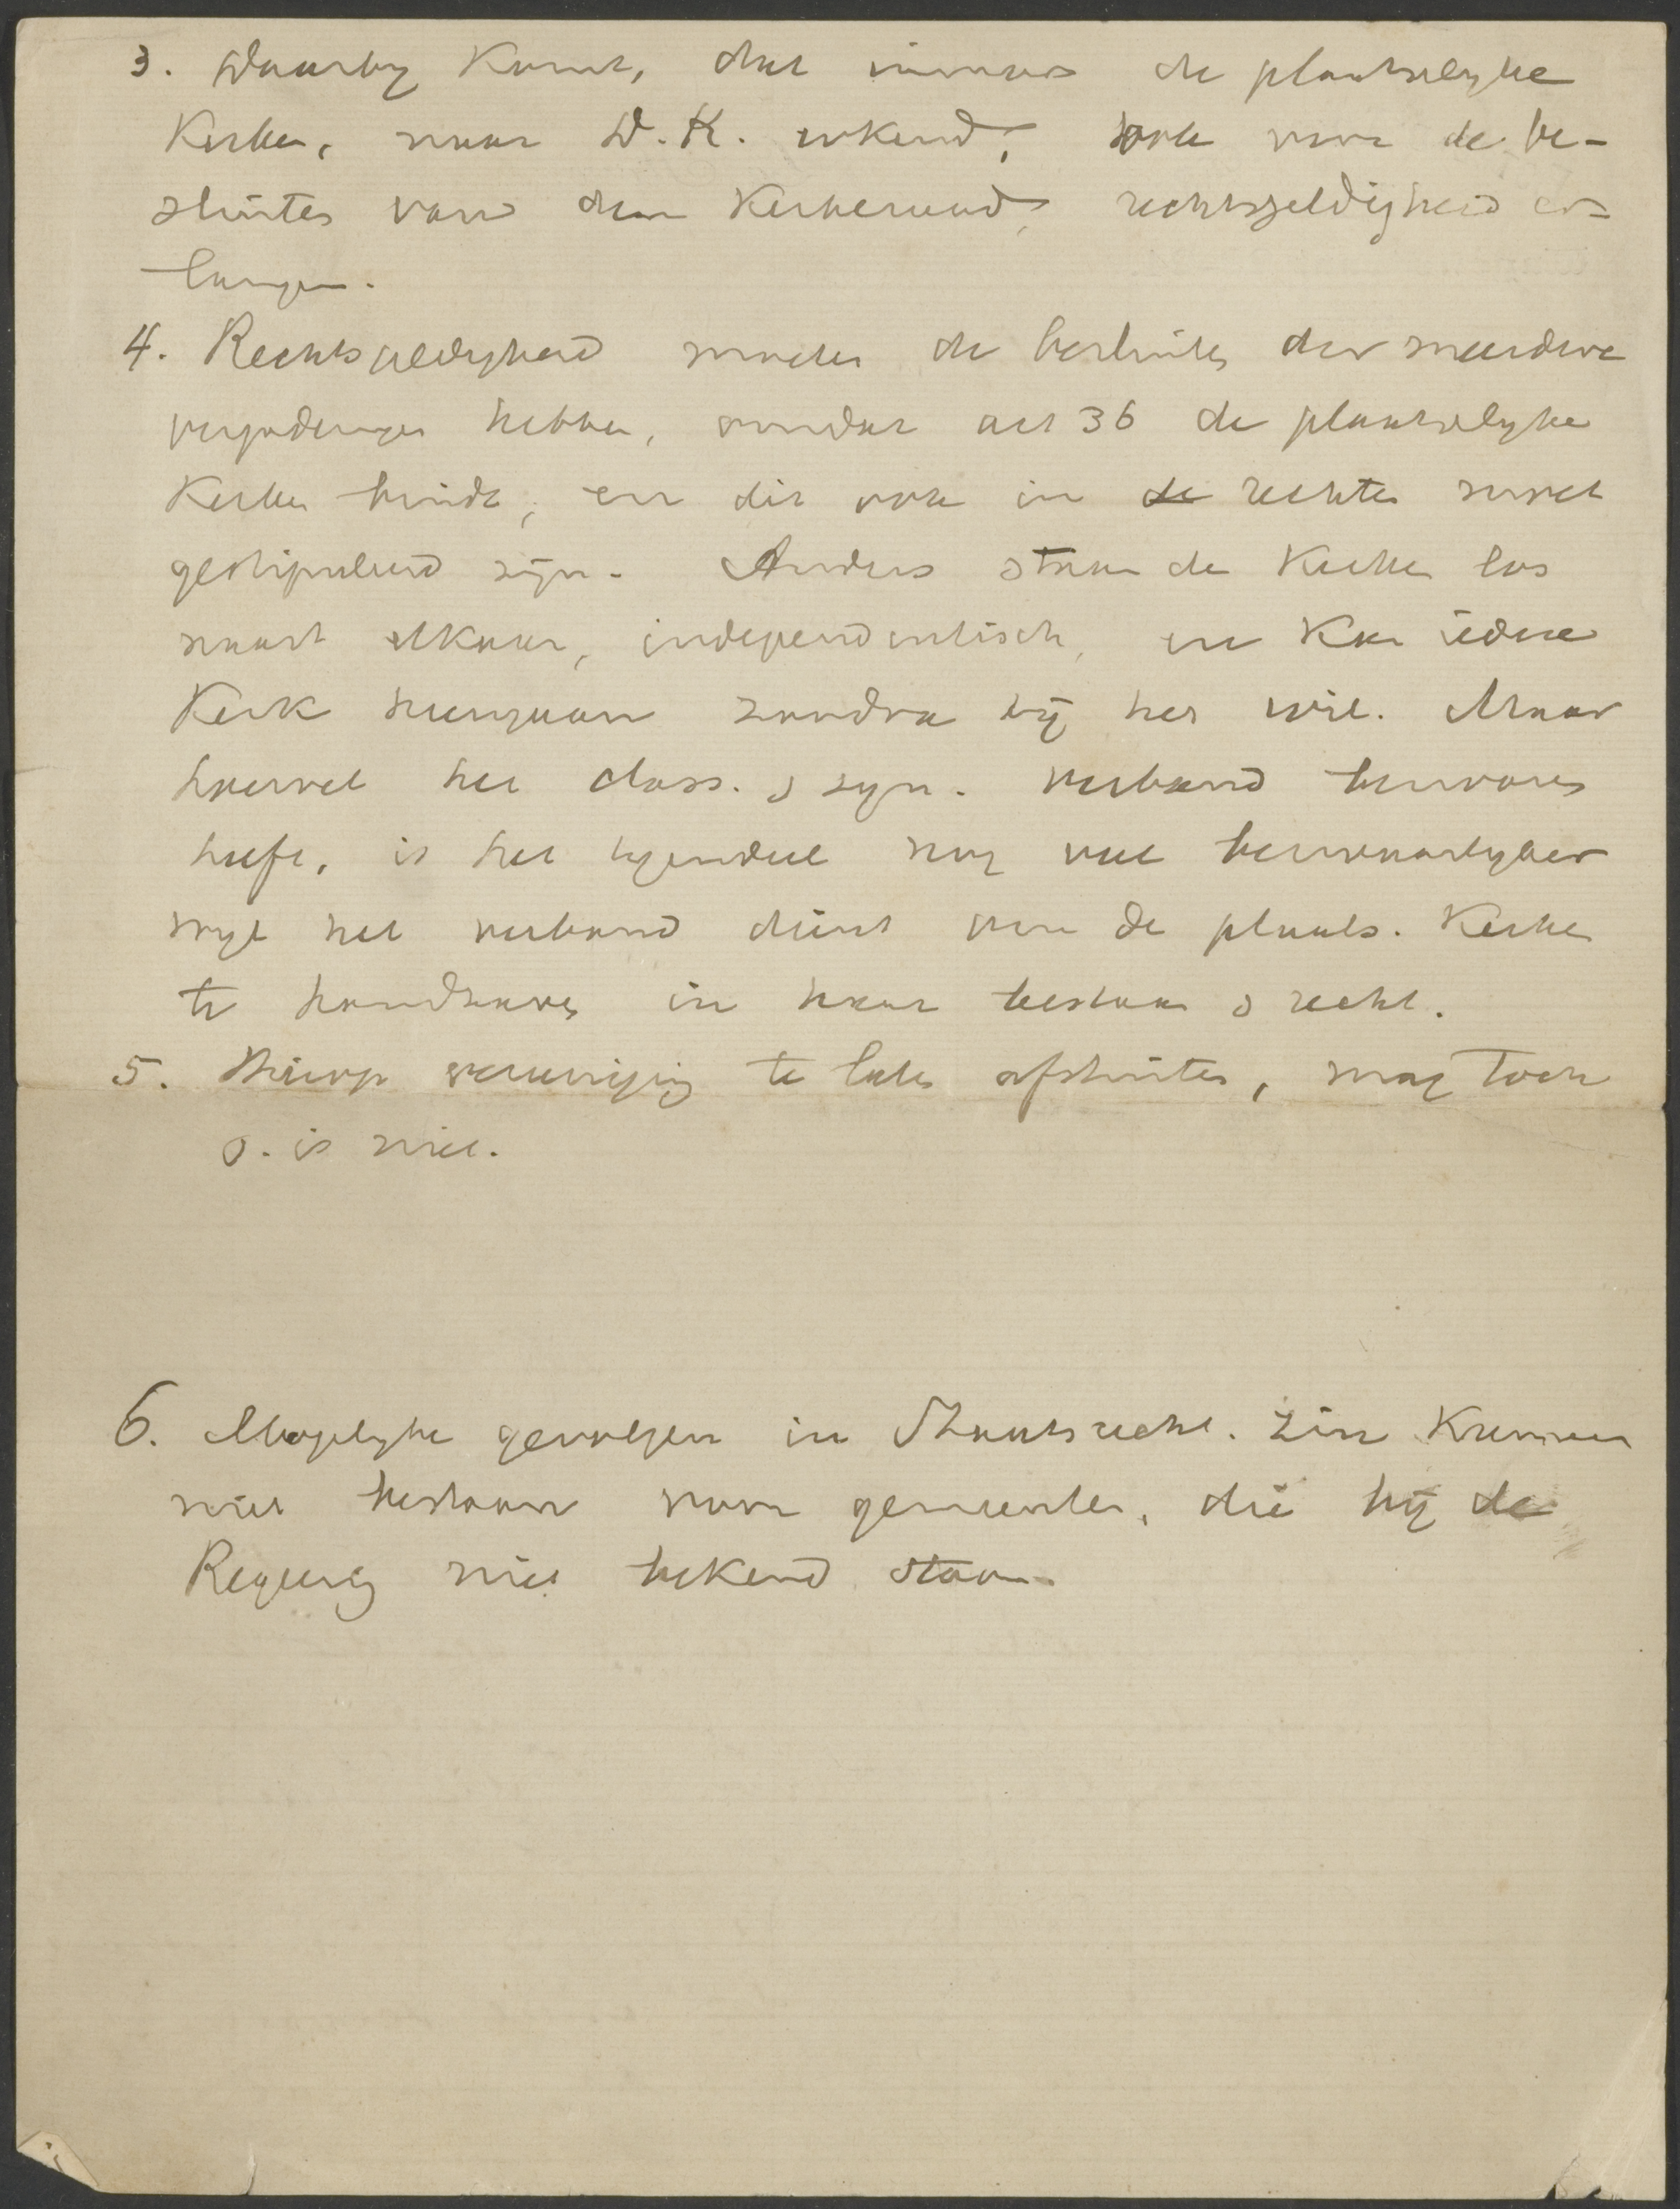 3. Daarby komt, dat immers de plaatselyke
Kerken, naar D.K. erkend, ook voor de be-
sluiten van den Kerkeraad, rechtsgeldigheid er-
langen.
4. Rechtsgeldigheid moeten de besluiten der meerdere
vergaderingen hebben, omdat art 36 de plaatselyke
Kerken bindt, en dit ook in de rechten moet
gestipuleerd zijn. Anders staan de Kerken los
naast elkaar, independentisch, en kan iedere
Kerk heengaan zoodra zij het wil. Maar
hoewel het class. & syn. verband bezwaren
heeft, is het tegendeel nog veel bezwaarlyker
wyl het verband dient om de plaats. Kerken
te handhaven in haar bestaan & recht.
5. Hierop vereeniging te laten afstuiten, mag toch
o. is niet.
6. Mogelyke gevolgen in Staatsrecht. Er kunnen
niet bestaan voor gemeenten, die bij de
Regeering niet bekend staan.